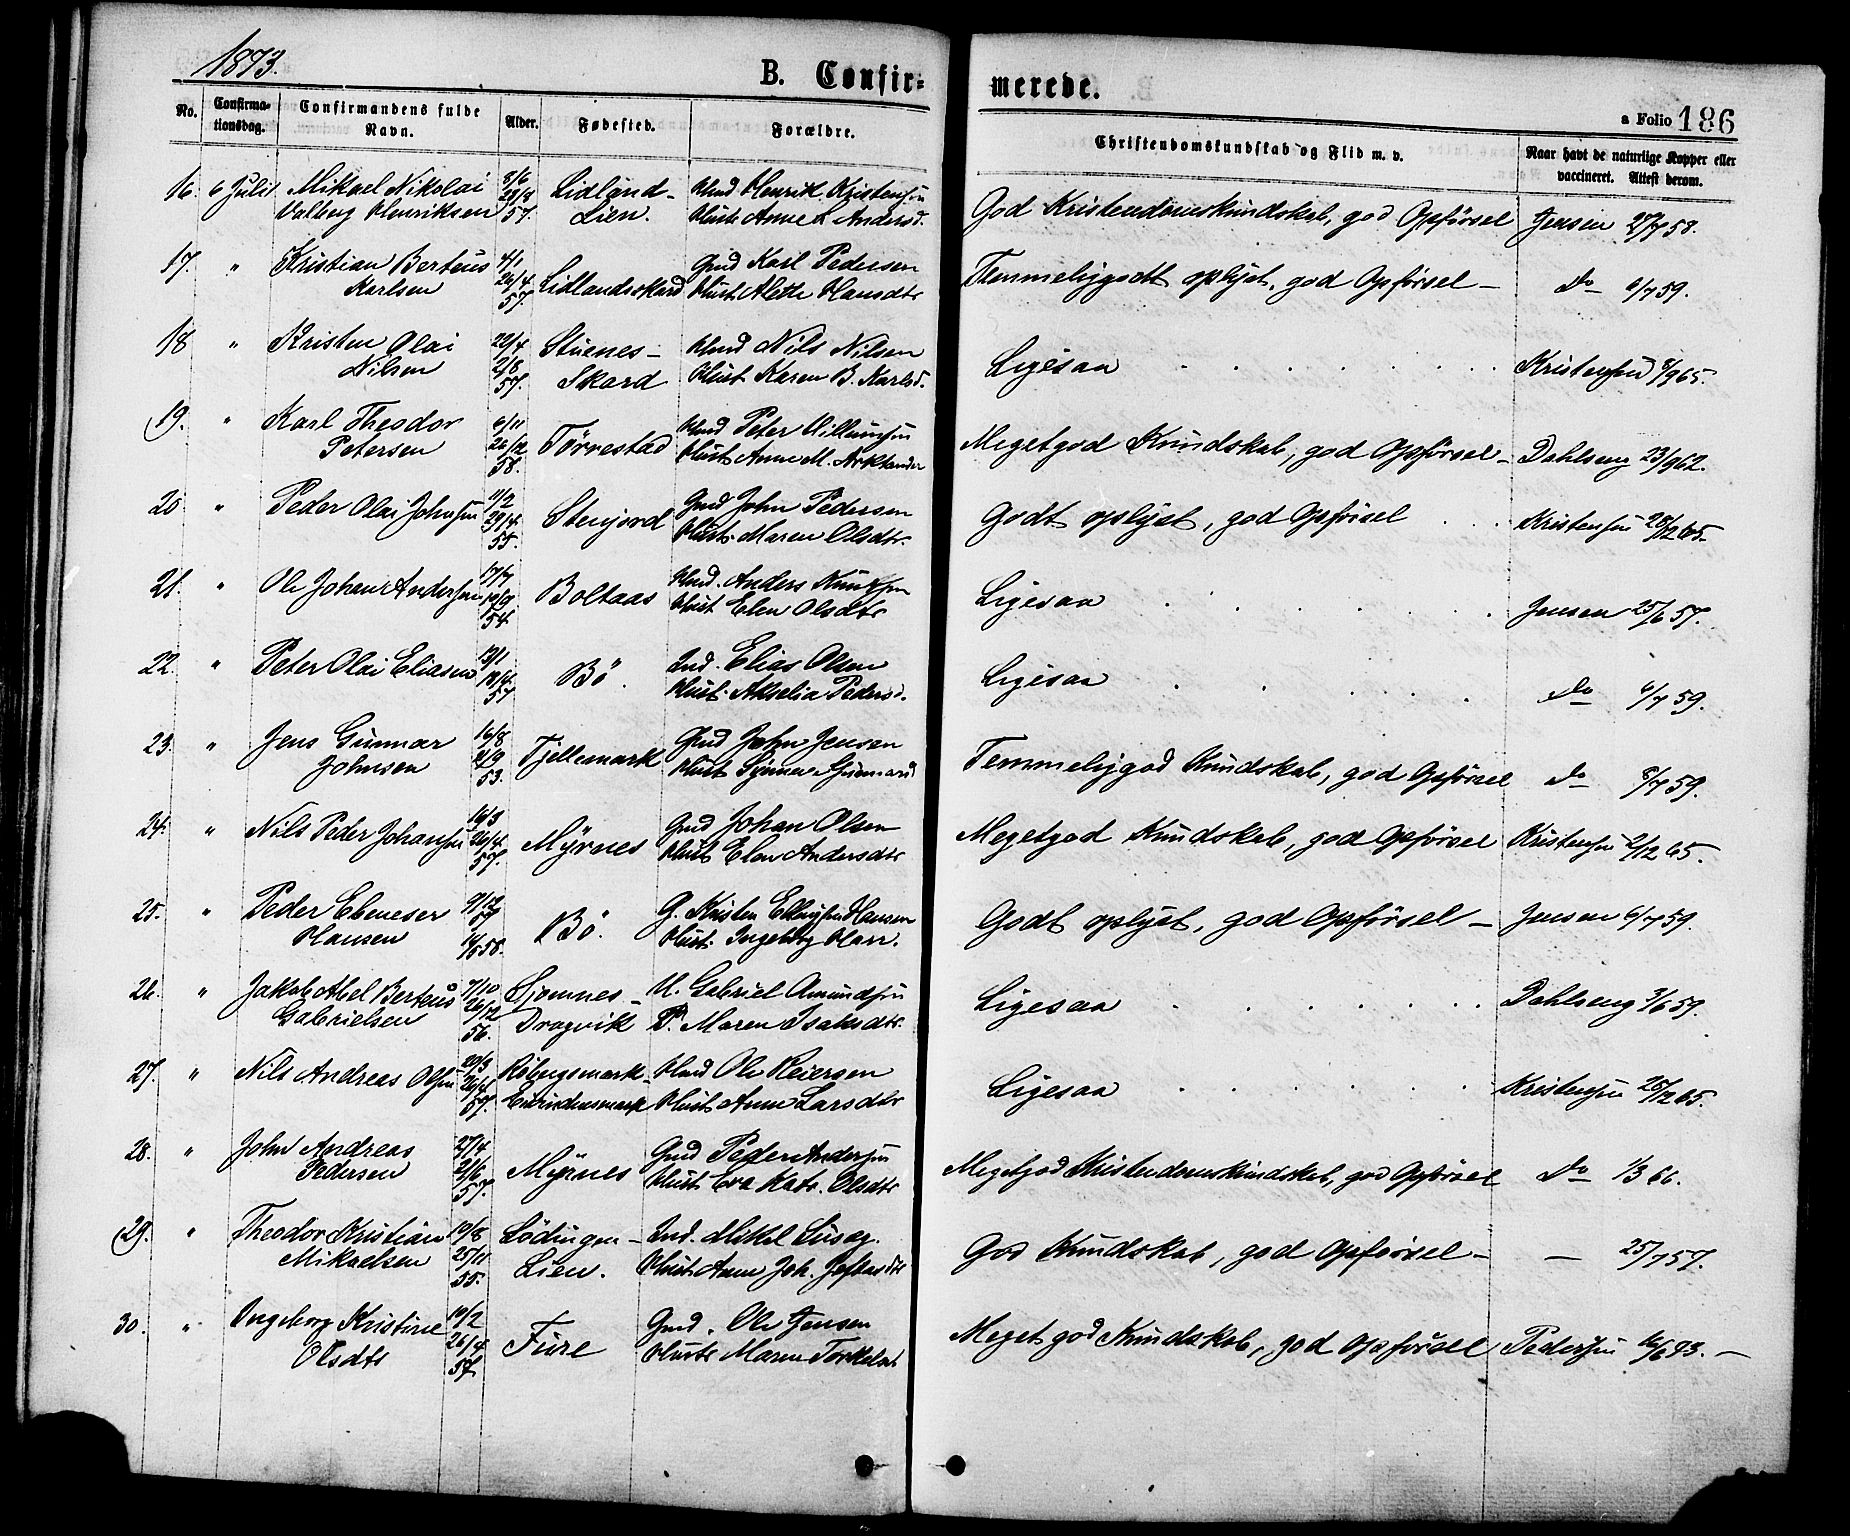 1873.
B. Confir-
merede.
a Folio 186
No.
Confirma-
tionsdag.
Confirmandens fulde
Navn.
Alder.
Fødested.
Forældre.
Christendomskundskab og Flid m. v.
Naar havt de naturlige Kopper eller
vaccineret. Attest derom.
16. 6 Juli Mikael Nikolai 8/6 Lidland- Henrik Kristensen
Valberg Henriksen 57. Lien. Hust. Anne L Andersd. God Kristendomskundskab, god Opførsel Jensen 27/7 58.
17. " Kristian Berteus 4/1 Gmd Karl Pedersen
Karlsen 26/4 57. Lidlandsskard Hust. Alette Hansdtr Temmeliggodt oplyst, god Opførsel - Do 6/7 59.
18 " Kristen Olai 22/4 Stuenes- Nils Nilsen
Nilsen 2/8 57. Skard Hust Karen B. Karlsd. Ligesaa Kristensen 8/9 65.
19. " Karl Theodor 6/11 Peter Willumsen
Petersen 26/12 58. Tørrestad Hust. Anne M. Arktander Megetgod Kundskab, god Opførsel - Dahlseng 23/9 62.
20 " Peder Olai Johnsen 11/2 29/4 55. Stenjord Gmd John Pedersen
Hust. Maren Olsdtr. Godt oplyst, god Opførsel Kristensen 28/12 65.
21. " Ole Johan Andersen 17/7 54 Boltaas Anders Knutsen
Hust Elen Olsdtr Ligesaa Jensen 25/6 57.
22. " Peter Olai Eliassen 13/1 57 Bö. Ind. Elias Olsen
Hust. Akselia Pedersd. Ligesaa Do 6/7 59.
23. " Jens Gunnar 16/8 Gmd John Jensen
Johnsen 53. Tjellemark Hust Synneve Gunnarsd Temmeliggod Kundskab, god Opførsel Do 8/7 59.
24. " Nils Peder Johansen 26/4 57. Myrnes Gmd Johan Olsen
Hust Elen Andersdtr Megetgod Kundskab, god Opførsel Kristensen 2/12 65.
25. " Peder Ebeneser 9/12 57 G. Kristen Ellingsen Hansen
Hansen 58. Bö. Hust. Ingeborg Hans. Godt oplyst, god Opførsel - Jensen 6/7 59.
26. " Jakob Abel Berteus 7/10 Sjomnes- U. Gabriel Amundsen
Gabrielsen 26/12 56. Dragvik P. Maren Isaksdtr. Ligesaa Dahlseng 3/6 59.
27. " Nils Andreas Olsen 20/3 26/4 57. Røbergsmark- Ole Reiersen
Hust. Anne Larsdtr Ligesaa Kristensen 28/12 65.
28. " John Andreas 27/4 Gmd Peder Andersen
Pedersen 21/6 57. Myrnes Hust. Eva Katr. Olsdtr Megetgod Kristendomskundskab, god Opførsel Do 1/3 66.
29. " Theodor Kristian 19/8 Lödingen- Ind. Mikel
Mikaelsen 25/11 55. Lien. Hust. Anne Joh. Jeftasdtr God Kundskab, god Opførsel - - 25/7 57.
30. " Ingeborg Kristine 19/2 Gmd. Ole Jensen
Olsdtr 26/4 57 Füre Hustr Maren Torkelsd Meget god Kundskab, god Opførsel Pedersen 16/6 73. -